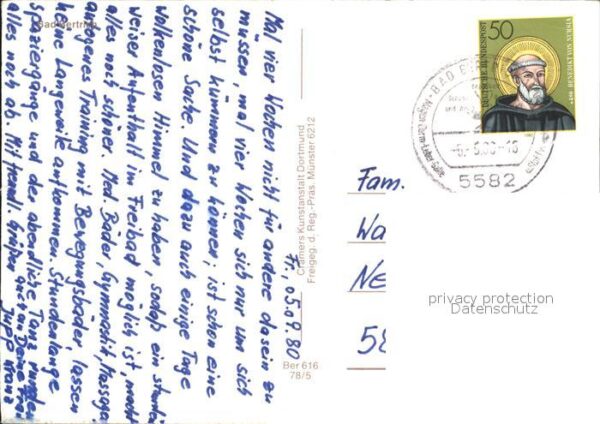 Bad Bertrich
Fr., 05.09.80
Mal vier Wochen nicht für andere dasein zu
müssen, mal vier Wochen sich nur um sich
selbst kümmern zu können; ist schon eine
schöne Sache. Und dazu auch einige Tage
wolkenlosen Himmel zu haben, sodaß ein stunden
weiser Aufenthalt im Freibad möglich ist, macht
alles noch schöner. Med. Bäder, Gymnastik, Massage,
Training mit Bewegungsbäder lassen
keine Langeweile aufkommen. Stundenlange
Spaziergänge und der abendliche Tanz runden
alles noch ab. Mit freundl. Grüßen
Cramers Kunstanstalt Dortmund
Freigeg. d. Reg.-Präs. Münster 6212
Ber 616
78/5
50
DEUTSCHE BUNDESPOST
BENEDIKT VON NURSIA
BAD
5582
Fam.
Wa
NE
58
privacy protection
Datenschutz